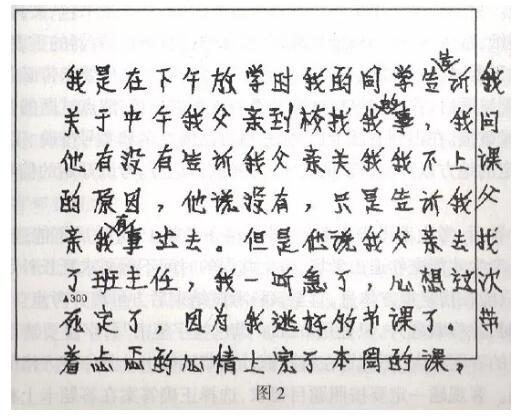 我是在下午放学时我的同学告诉我
关于中午我父亲到校找我故事，我问
他有没有告诉我父亲我我不上课
的原因，他说没有，只是告诉我父
亲我有事出去，但是他说我父亲去找
了班主任，我一听急了，心想这次
▲300
死定了，因为我逃好的节课了，带
着忐忑的心情上完了本周的课。
图2